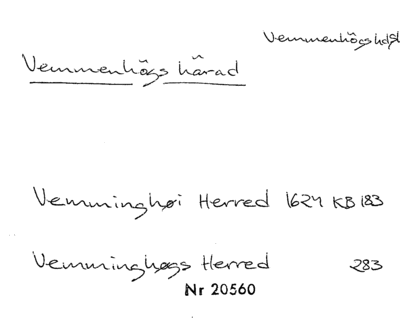 Vemmenhögs hdšl
Vemmenhögs härad
Vemminghøi Herred 1624 KB 183
Vemminghøgs Herred 283
Nr 20560